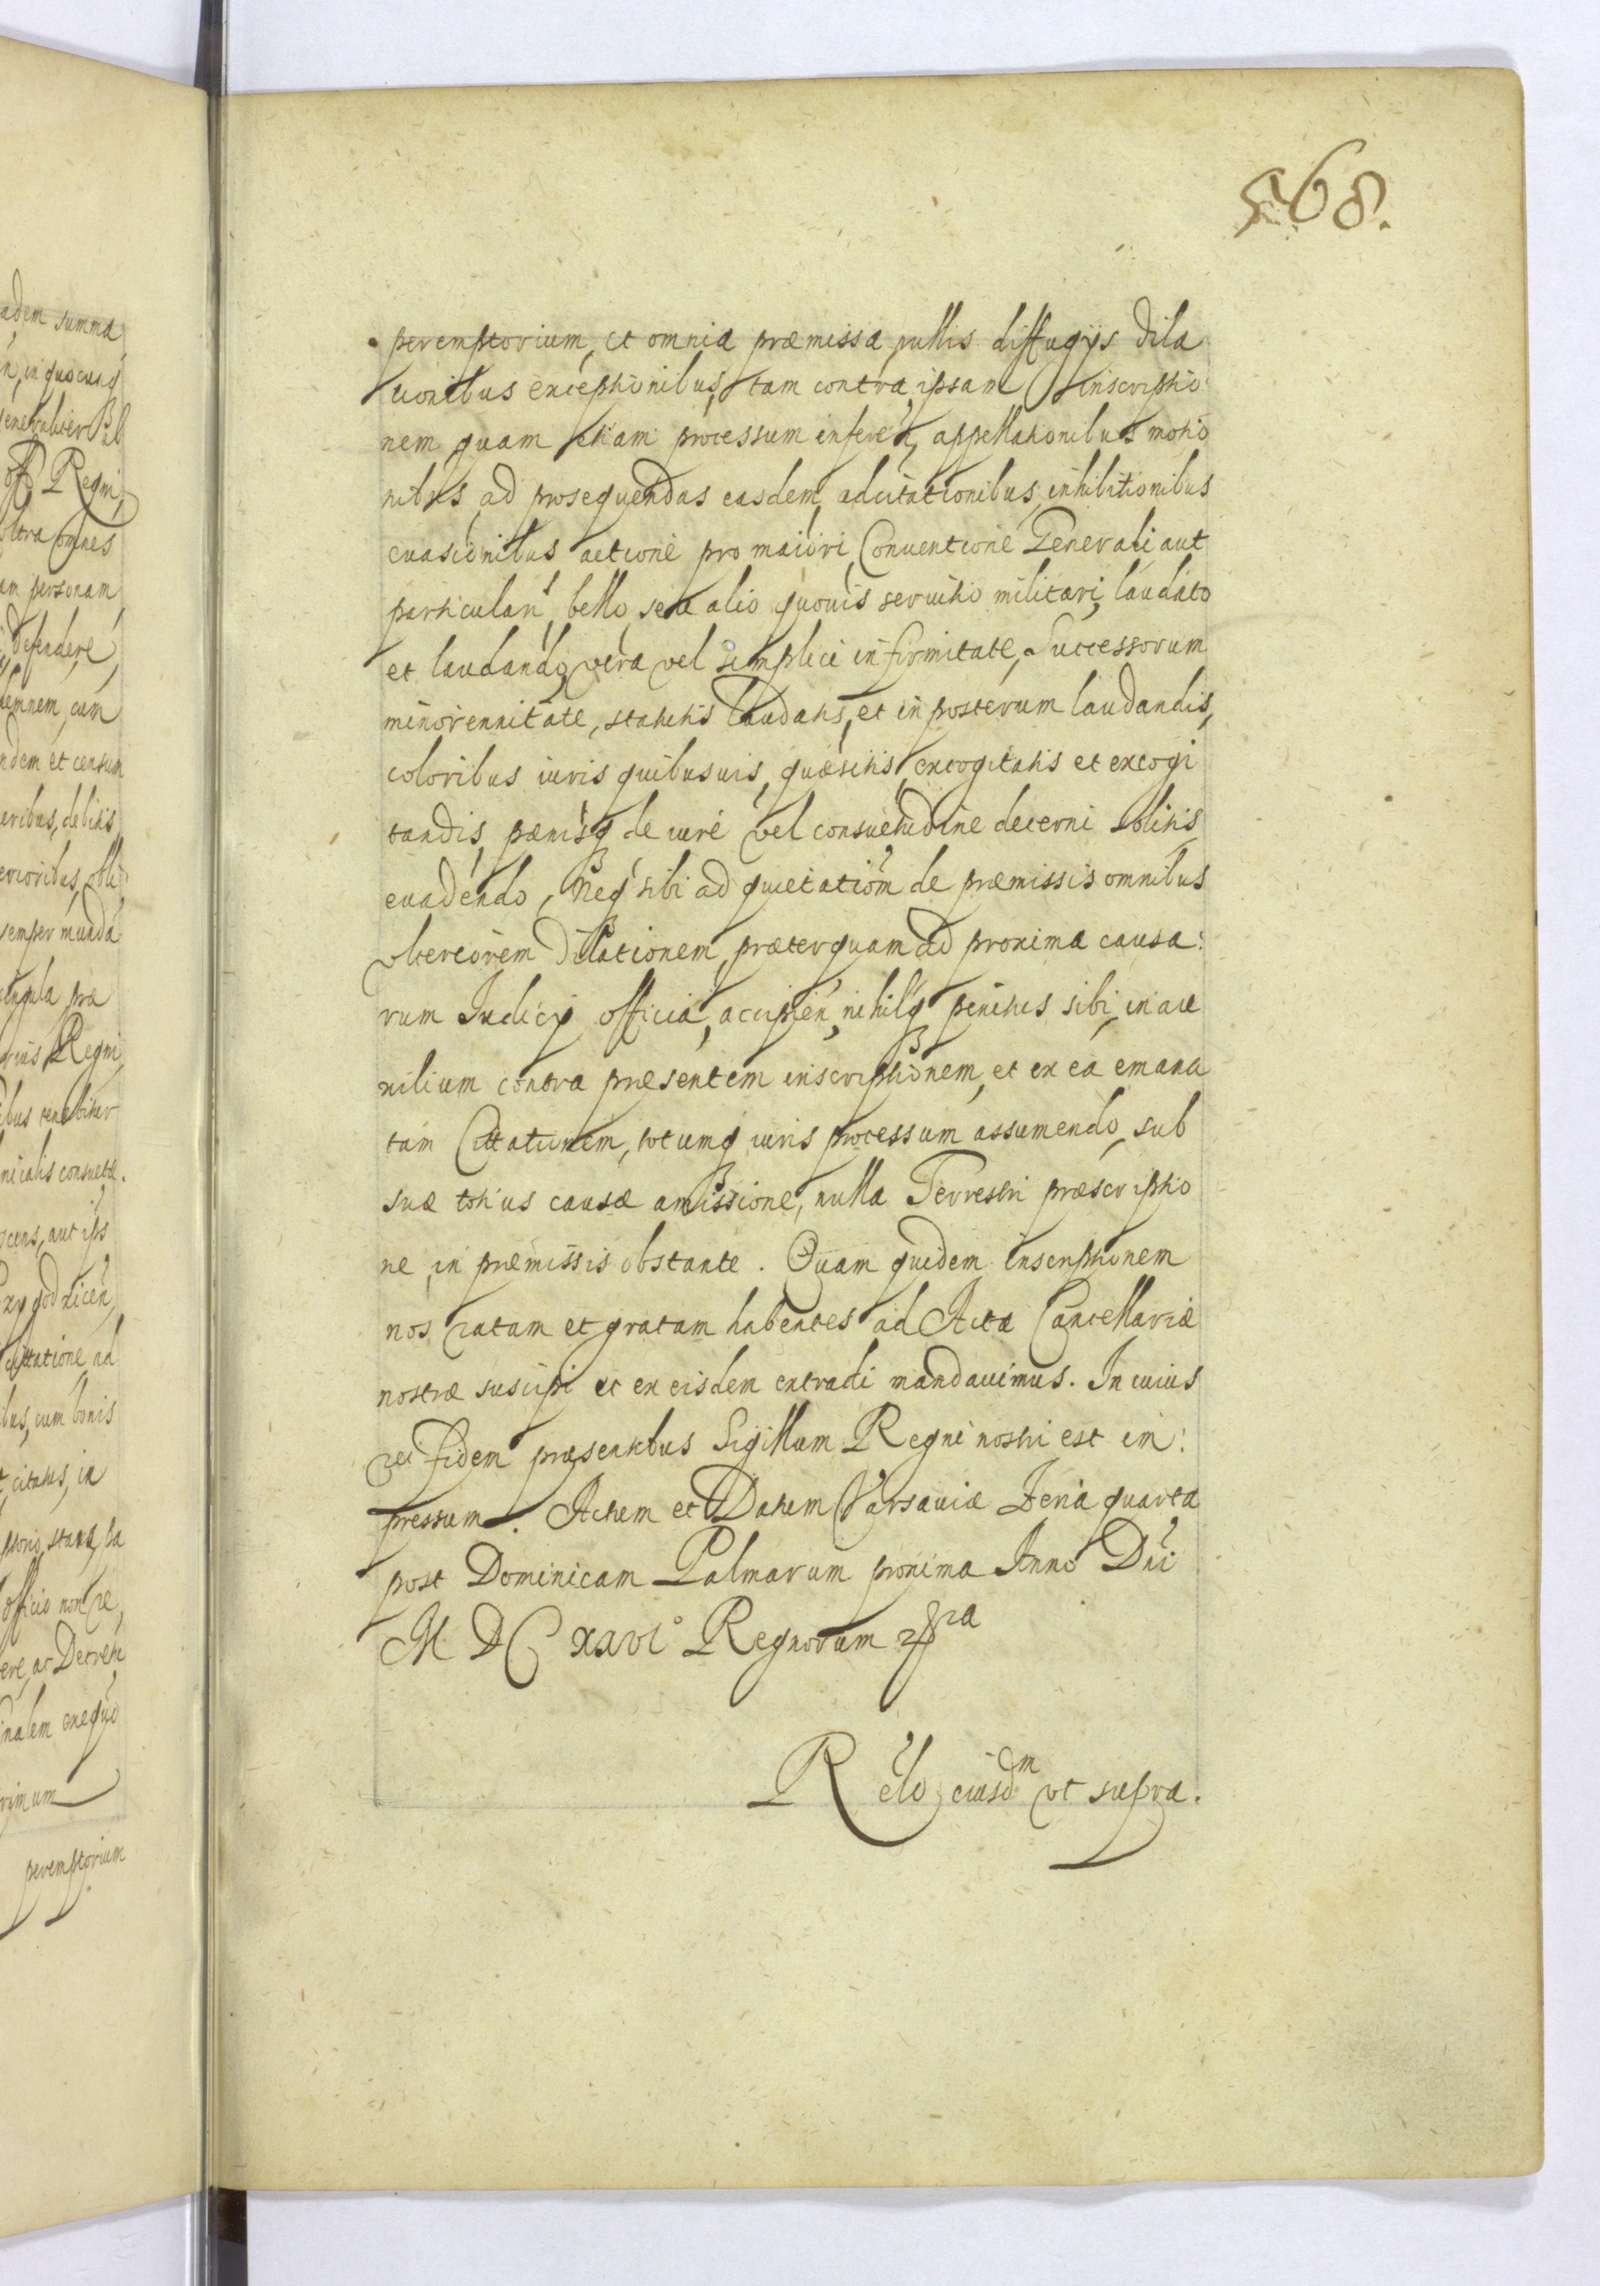 568.
peremptorium, et omnia præmissa nullis diffugijs dila
tionibus exceptionibus, tam contra ipsam inscriptio
nem quam etiam processum inferen, appellationibus motio
nibus ad prosequendas easdem, adcitationibus inhibitionibus
euasionibus actione pro maiori, Conuentione Generali aut
particulari bello seu alio quouis seruitio militari, laudato
et laudando, vera vel simplici infirmitate, Successorum
minorennitate, statutis laudatis, et in posterum laudandis,
coloribus iuris quibusuis, quæsitis excogitatis et excogi
tandis, pænisq de iure vel consuetudine decerni solitis
euadendo, Neq sibi ad quietationm de præmissis omnibus
vlteriorem dilationem, præterquam ad proxima causa:
rum Iudicij officia, accipien, nihilq penitus sibi, in au
xilium contra præsentem inscriptionem, et ex ea emana
tam Cittationem, totumq iuris processum assumendo, sub
suæ totius causæ amissione, nulla Terrestri præscriptio
ne, in præmissis obstante. Quam quidem inscriptionem
nos ratam et gratam habentes ad Acta Cancellariæ
nostræ suscipi et ex eisdem extradi mandauimus. In cuius
rei fidem præsentibus Sigillum Regni nostri est im:
pressum. Actum et Datum Varsauiæ Feria quarta
post Dominicam Palmarum proxima Anno Dni
M D C xxvi° Regnorum
Relo eiusdm vt supra.
adem summa
n, in quocunq
off Regni,
vltra omnes
am personam
defendere,
demnem, cum
ndem et censum
eribus, debitis
semper munda
singula præ
Regni
ibus tenebitur
nicalis consuetæ.
ocens, aut ips
cittatione ad
ibus, cum bonis
citatus, in
officio non re,
ere, ac Decreti
nalem exequo
rimum
peremptorium